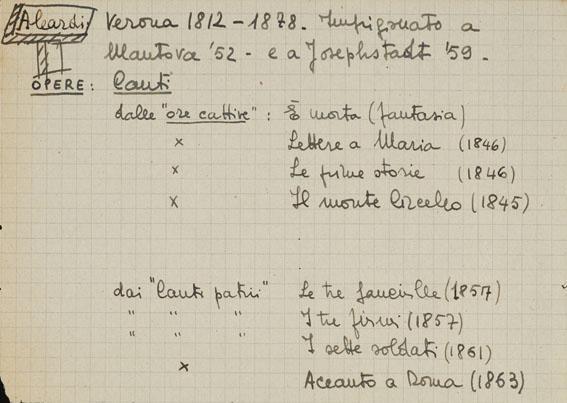 Aleardi Verona 1812 - 1878. Imprigionato a
Mantova '52 - e a Josephstadt '59.
OPERE: Canti
dalle "ore cattive": È morta (fantasia)
x Lettere a Maria (1846)
x Le prime storie (1846)
x Il monte Circello (1845)
dai "Canti patrii" Le tre fanciulle (1857)
" " " I tre fiumi (1857)
" " " I sette soldati (1861)
x Accanto a Roma (1863)